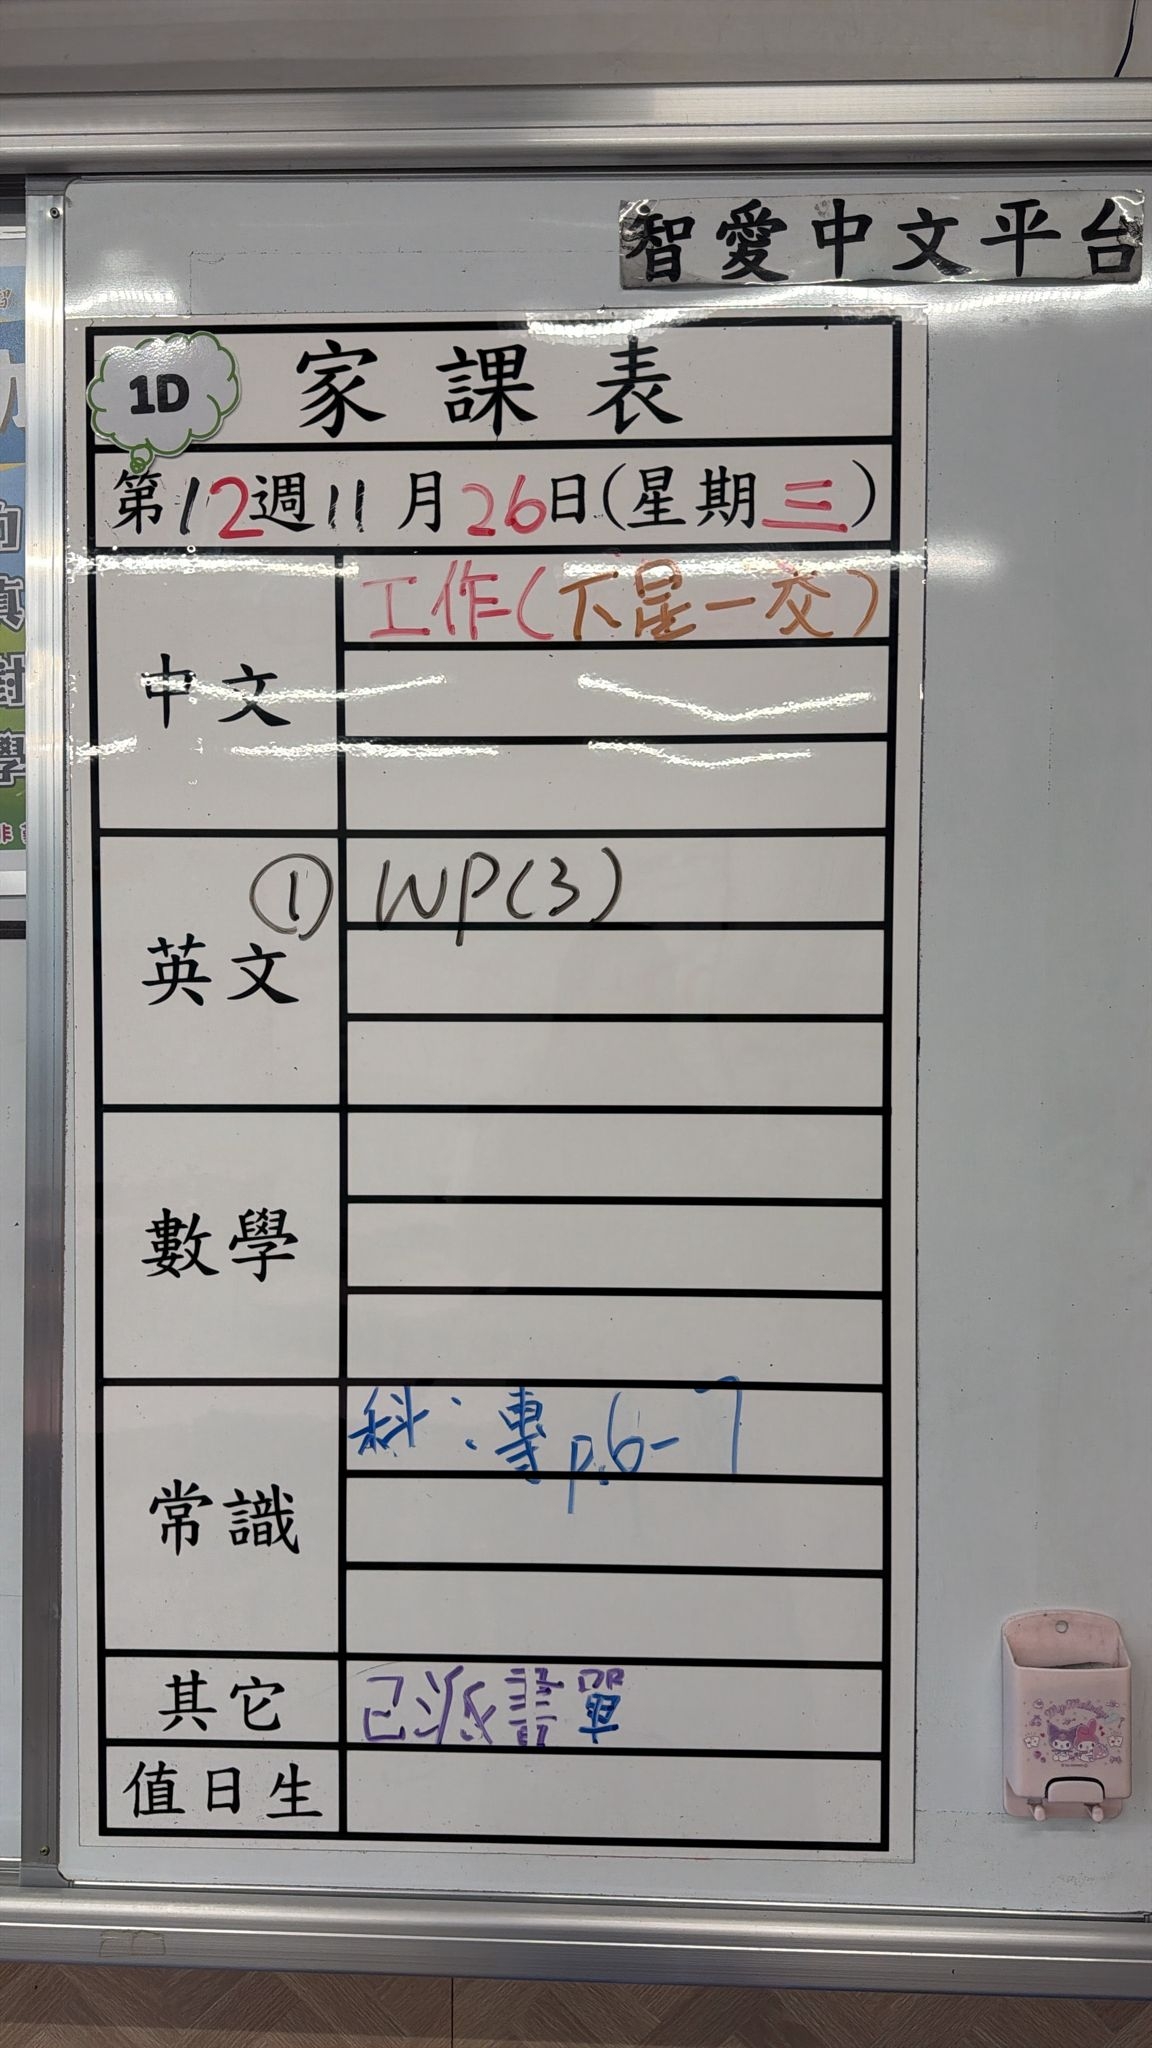 智愛中文平台
1D
家課表
第12週11月26日(星期三)
中文
工作(下星一交)
英文
① WP(3)
數學
常識
科:專p.6-7
其它
已派默單
值日生
My Melody